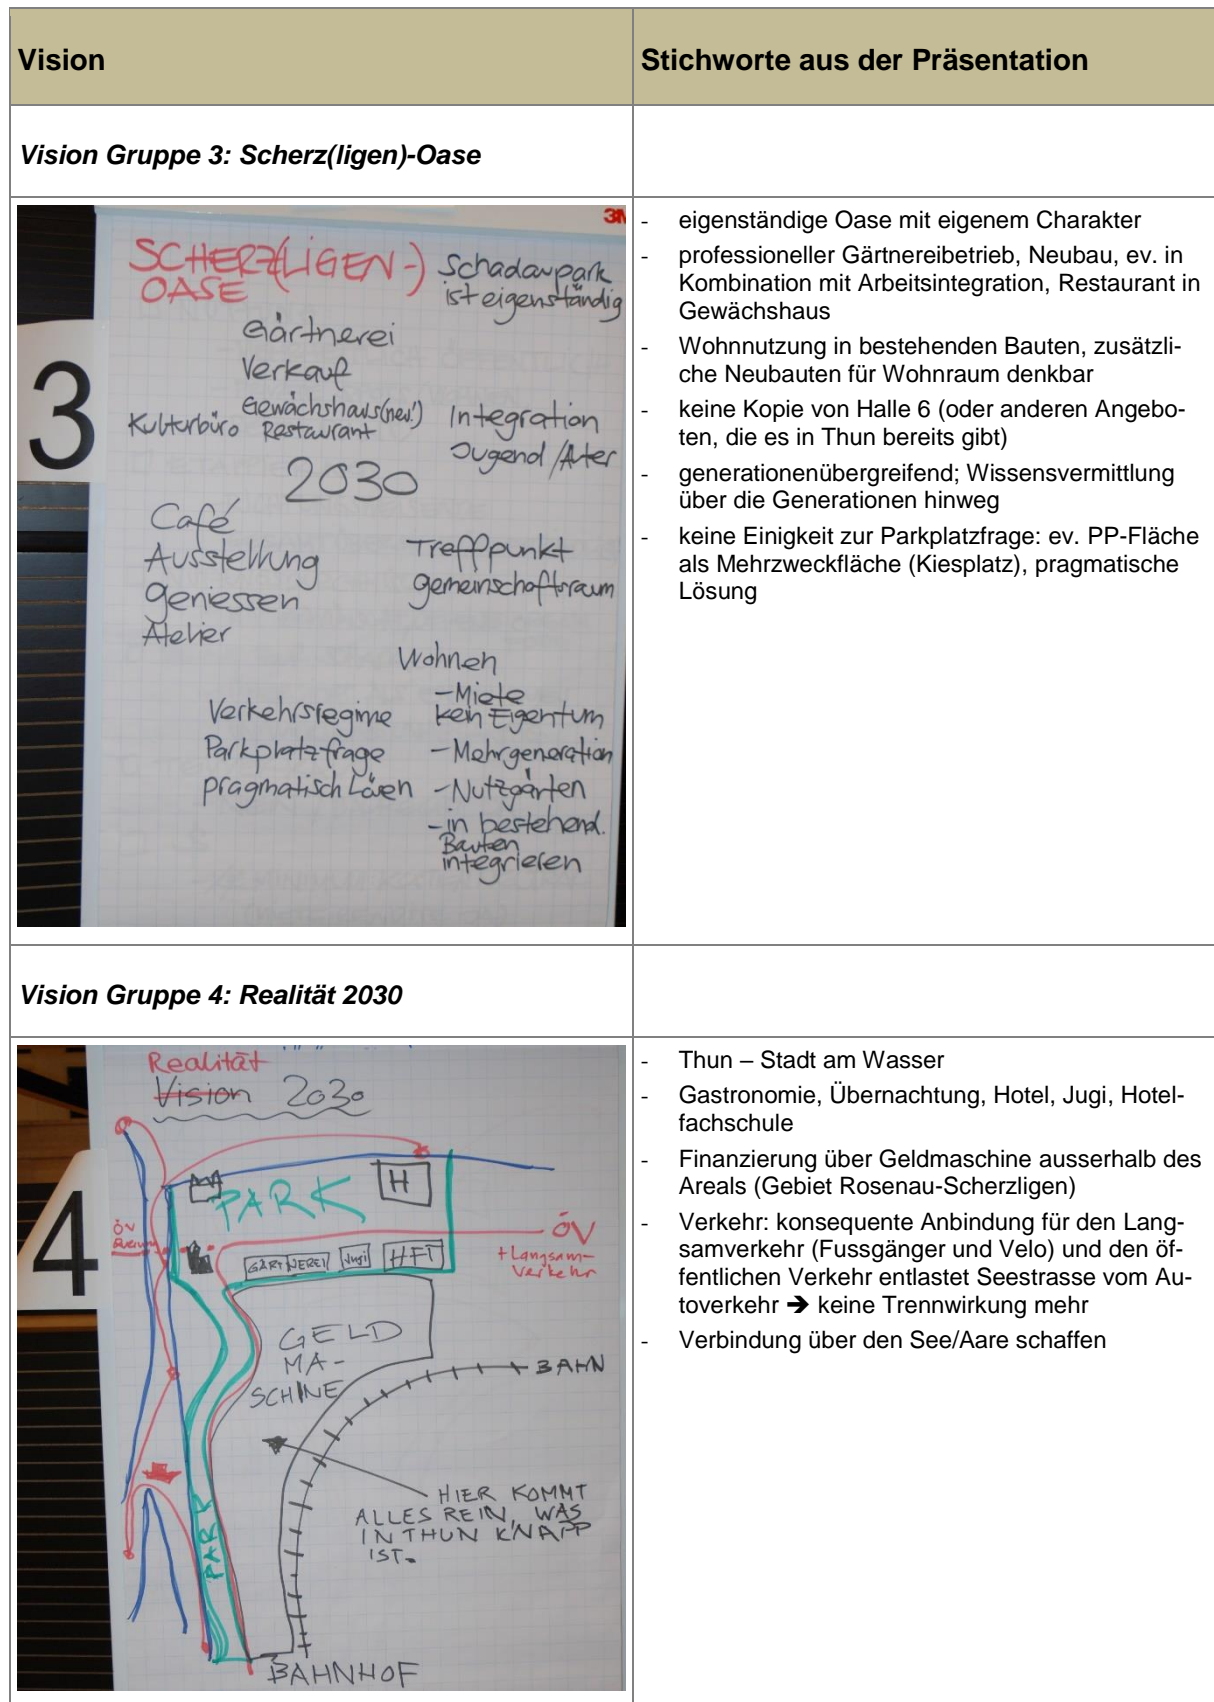 Vision
Stichworte aus der Präsentation
Vision Gruppe 3: Scherz(ligen)-Oase
3M
SCHERZ(LIGEN-)
OASE
Schadaupark
ist eigenständig
Gärtnerei
Verkauf
Gewächshaus(neu!)
Kulturbüro Restaurant
Integration
Jugend/Alter
3
2030
Café
Ausstellung
geniessen
Atelier
Treffpunkt
gemeinschaftsraum
Wohnen
-Miete
kein Eigentum
-Mehrgeneration
-Nutzgärten
-in bestehend.
Bauten
integrieren
Verkehrsregime
Parkplatzfrage
pragmatisch Lösen
- eigenständige Oase mit eigenem Charakter
- professioneller Gärtnereibetrieb, Neubau, ev. in
Kombination mit Arbeitsintegration, Restaurant in
Gewächshaus
- Wohnnutzung in bestehenden Bauten, zusätzli-
che Neubauten für Wohnraum denkbar
- keine Kopie von Halle 6 (oder anderen Angebo-
ten, die es in Thun bereits gibt)
- generationenübergreifend; Wissensvermittlung
über die Generationen hinweg
- keine Einigkeit zur Parkplatzfrage: ev. PP-Fläche
als Mehrzweckfläche (Kiesplatz), pragmatische
Lösung
Vision Gruppe 4: Realität 2030
Realität
Vision 2030
4
PARK
H
ÖV
ÖV
+Langsam-
verkehr
GÄRTNEREI
Jugi
HFT
GELD
MA-
SCHINE
BAHN
HIER KOMMT
ALLES REIN, WAS
IN THUN KNAPP
IST.
PARK
BAHNHOF
- Thun – Stadt am Wasser
- Gastronomie, Übernachtung, Hotel, Jugi, Hotel-
fachschule
- Finanzierung über Geldmaschine ausserhalb des
Areals (Gebiet Rosenau-Scherzligen)
- Verkehr: konsequente Anbindung für den Lang-
samverkehr (Fussgänger und Velo) und den öf-
fentlichen Verkehr entlastet Seestrasse vom Au-
toverkehr ➔ keine Trennwirkung mehr
- Verbindung über den See/Aare schaffen